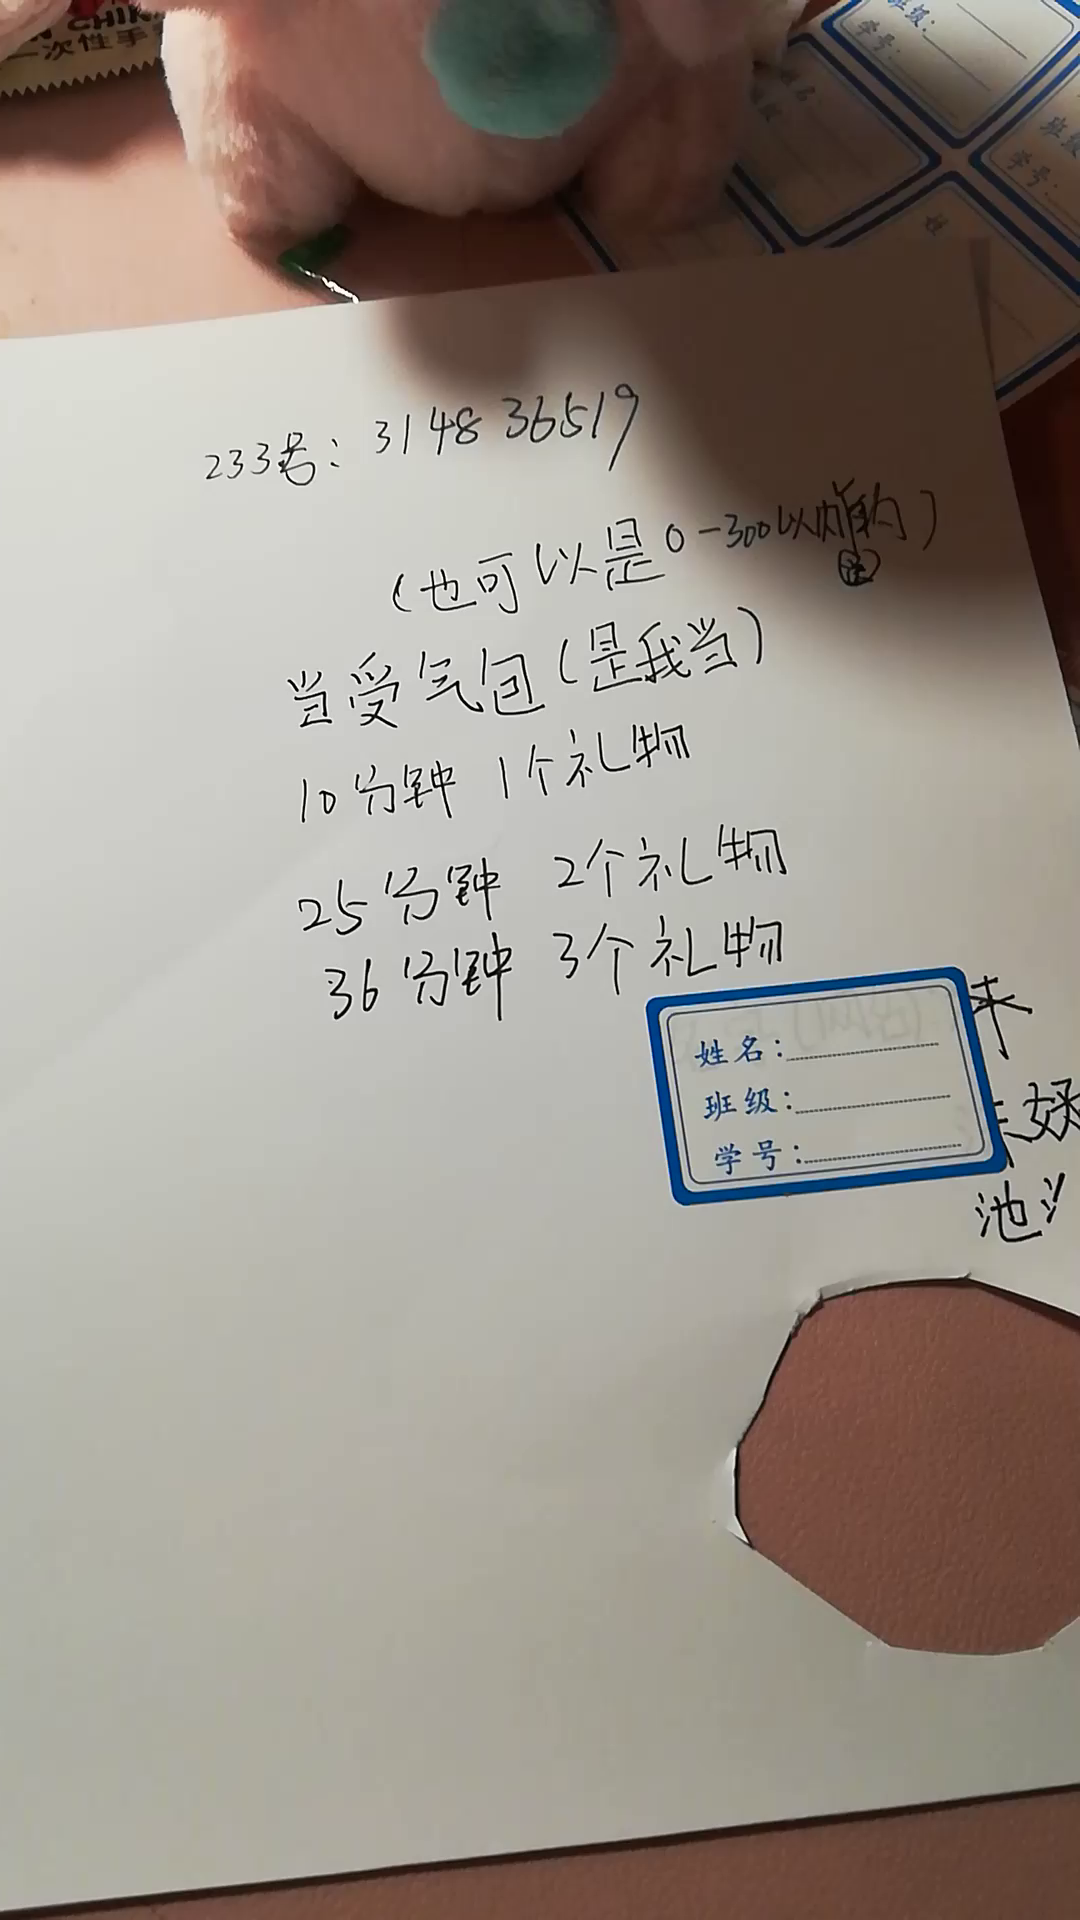 CHIK
一次性手
班级:
学号:
班级
学号:
姓
233号: 314836519
(也可以是0-300以内的)
当受气包(是我当)
10分钟 1个礼物
25分钟 2个礼物
36分钟 3个礼物
姓名:
班级:
学号:
来
池